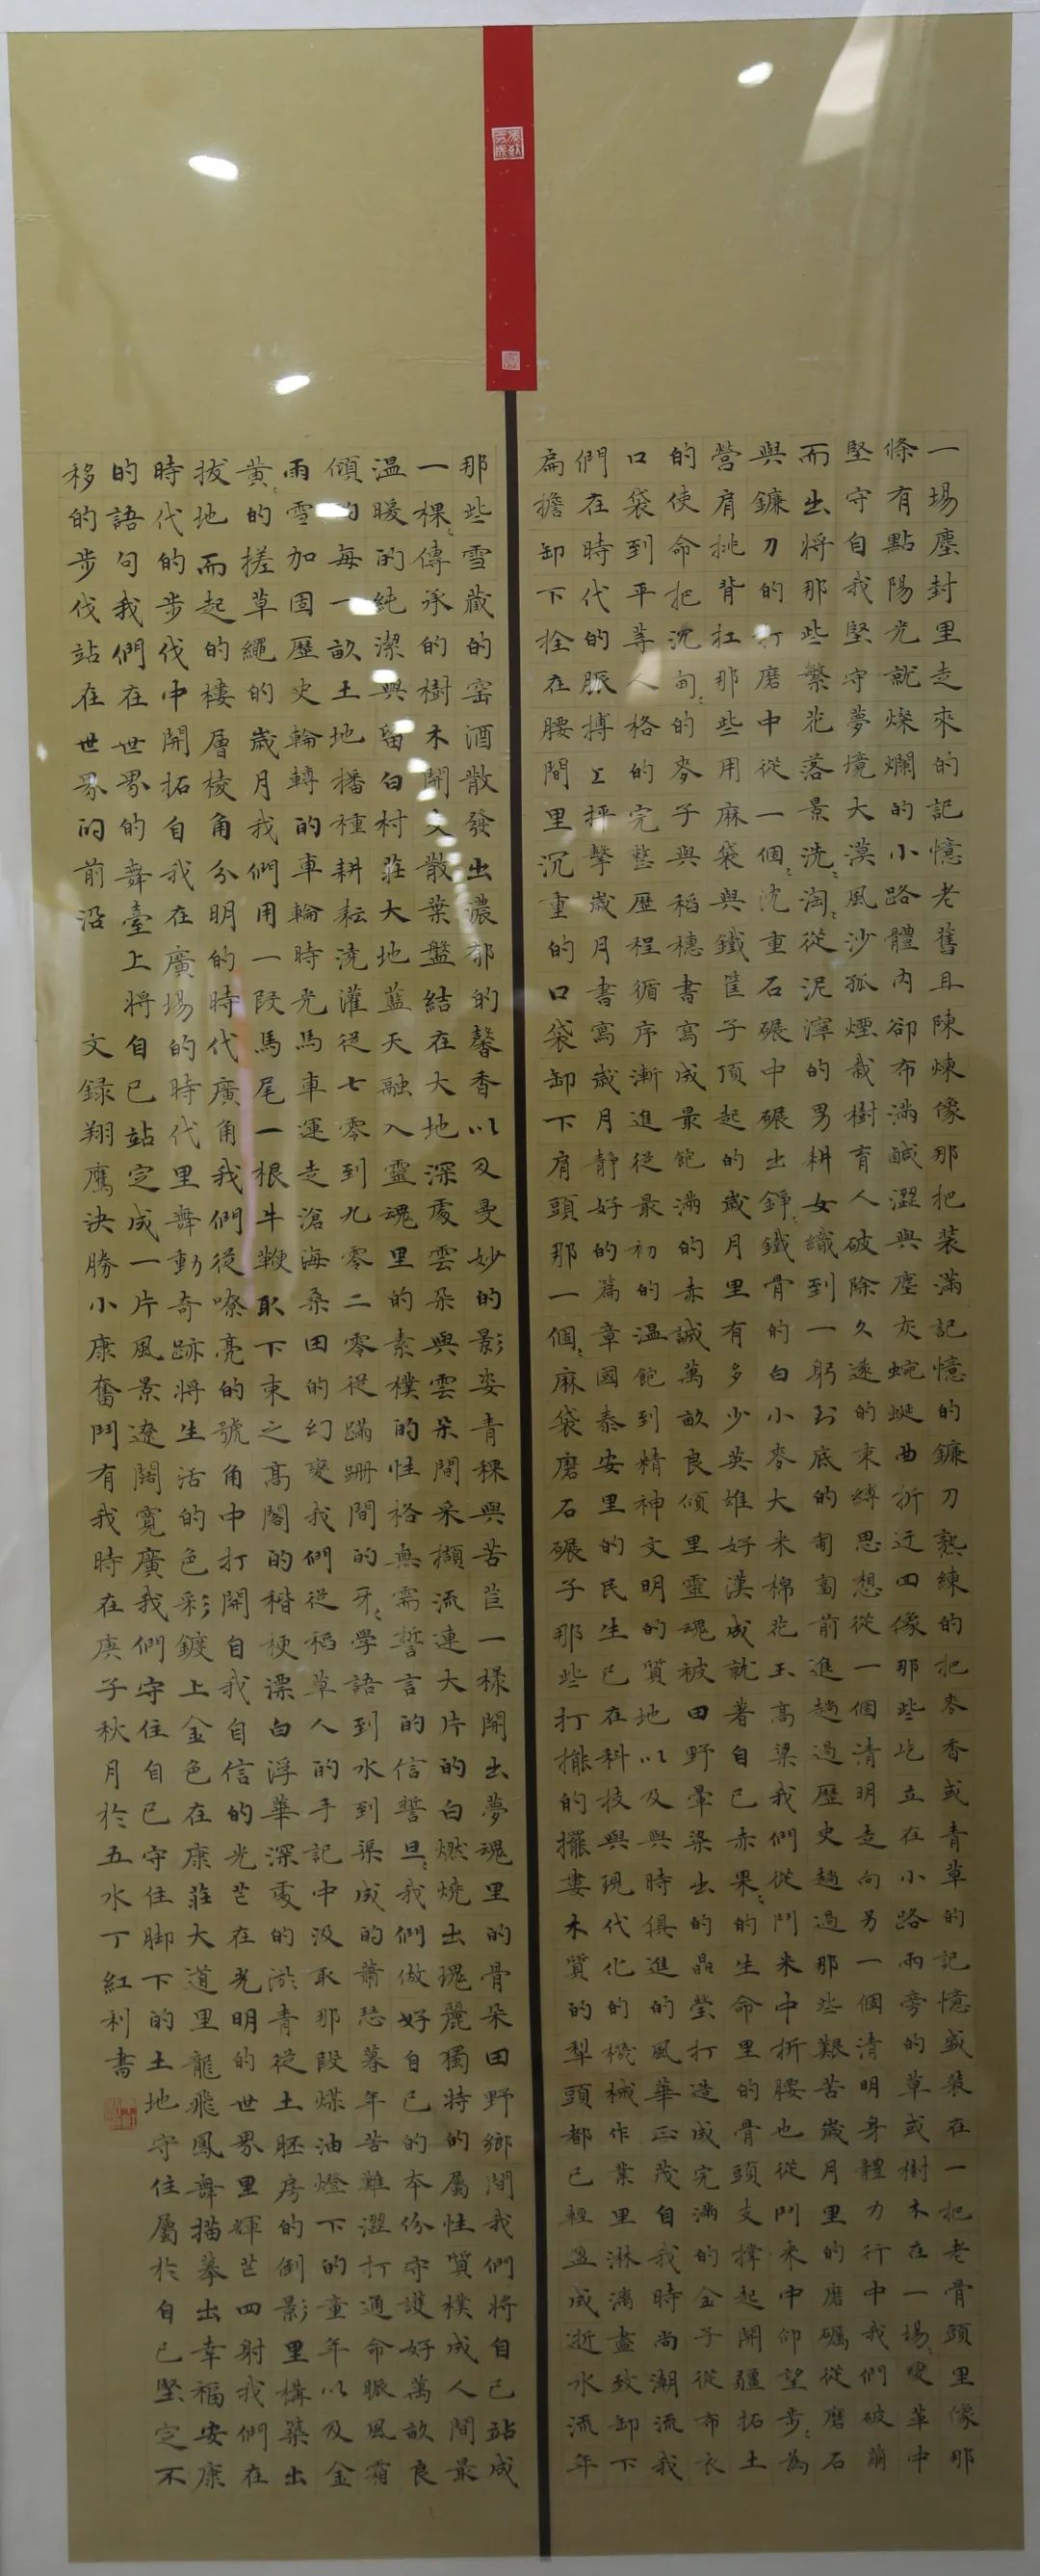 一場塵封里走來的記憶老舊且陳煉像那把裝滿記憶的鐮刀熟練的把麥香或青草的記憶盛裝在一把老骨頭里像那
條有點陽光就燦爛的小路體內卻布滿鹹澀與塵灰蜿蜒曲折迂回像那些屹立在小路兩旁的草或樹木在一場變革中
堅守自我堅守夢境大漠風沙孤煙栽樹育人破除久遠的束縛思想從一個清明走向另一個清明身體力行中我們破繭
而出將那些繁花落景洗淘從泥濘的男耕女織到一躬到底的匍匐前進趟過歷史趟過那些艱苦歲月里的磨礪從磨石
與鐮刀的打磨中從一個沈重石碾中碾出錚鐵骨的白小麥大米棉花玉高粱我們從鬥米中折腰也從鬥米中仰望步為
營肩挑背扛那些用麻袋與鐵筐子頂起的歲月里有多少英雄好漢成就著自己赤果的生命里的骨頭支撐起開疆拓土
的使命把沉甸的麥子與稻穗書寫成最飽滿的赤誠萬畝良傾里靈魂被田野暈染出的晶瑩打造成完滿的金子從布衣
口袋到平等人格的完整歷程循序漸進從最初的溫飽到精神文明的質地以及與時俱進的風華正茂自我時尚潮流我
們在時代的脈搏上抨擊歲月書寫歲月靜好的篇章國泰安里的民生已在科技與現代化的機械作業里淋漓盡致卸下
扁擔卸下拴在腰間里沉重的口袋卸下肩頭那一個麻袋磨石碾子那些打攏的擺婁木質的犁頭都已輕盈成逝水流年
那些雪藏的窖酒散發出濃郁的馨香以及曼妙的影姿青稞與苦苣一樣開出夢魂里的骨朵田野鄉間我們將自己站成
一棵傳承的樹木開支散葉盤結在大地深處雲朵與雲朵間采擷流連大片的白燃燒出瑰麗獨特的屬性質樸成人間最
溫暖的純潔與留白村莊大地藍天融入靈魂里的素樸的性格無需誓言的信誓旦我們做好自己的本份守護好萬畝良
傾的每一畝土地播種耕耘澆灌從七零到九零二零從蹣跚間的牙學語到水到渠成的蕭恐暮年苦難澀打通命脈風霜
雨雪加固歷史輪轉的車輪時光馬車運走滄海桑田的幻變我們從稻草人的手記中汲取那段煤油燈下的童年以及金
黃的搓草繩的歲月我們用一段馬尾一根牛鞭取下束之高閣的稭梗漂白浮華深處的淤青從土胚房的倒影里構築出
拔地而起的樓層棱角分明的時代廣角我們從嘹亮的號角中打開自我自信的光芒在光明的世界里輝芒四射我們在
時代的步伐中開拓自我在廣場的時代里舞動奇跡將生活的色彩鍍上金色在康莊大道里龍飛鳳舞描摹出幸福安康
的語句我們在世界的舞臺上將自己站定成一片風景遼闊寬廣我們守住自己守住脚下的土地守住屬於自己堅定不
移的步伐站在世界的前沿
文録翔鷹決勝小康奮鬥有我時在庚子秋月於五水丁紅利書